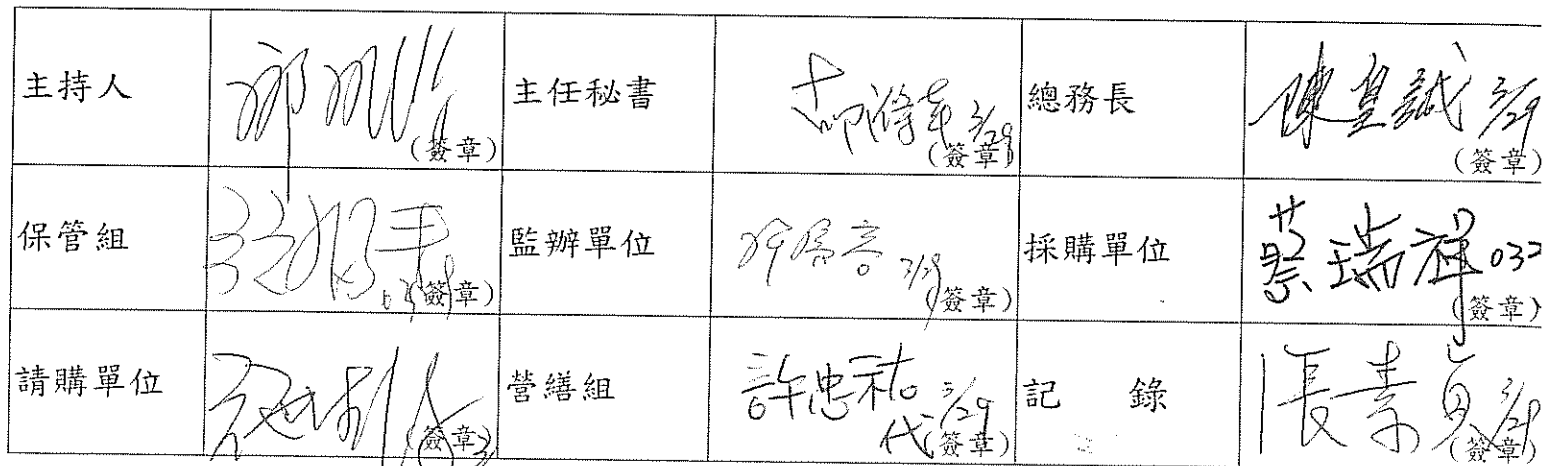 主持人 (簽章) 主任秘書 3/29 (簽章) 總務長 陳皇誠 3/29 (簽章)
保管組 (簽章) 監辦單位 3/29 (簽章) 採購單位 蔡瑞祥 032 (簽章)
請購單位 (簽章) 營繕組 許忠祐 3/29 代 (簽章) 記 錄 張素貞 3/29 (簽章)